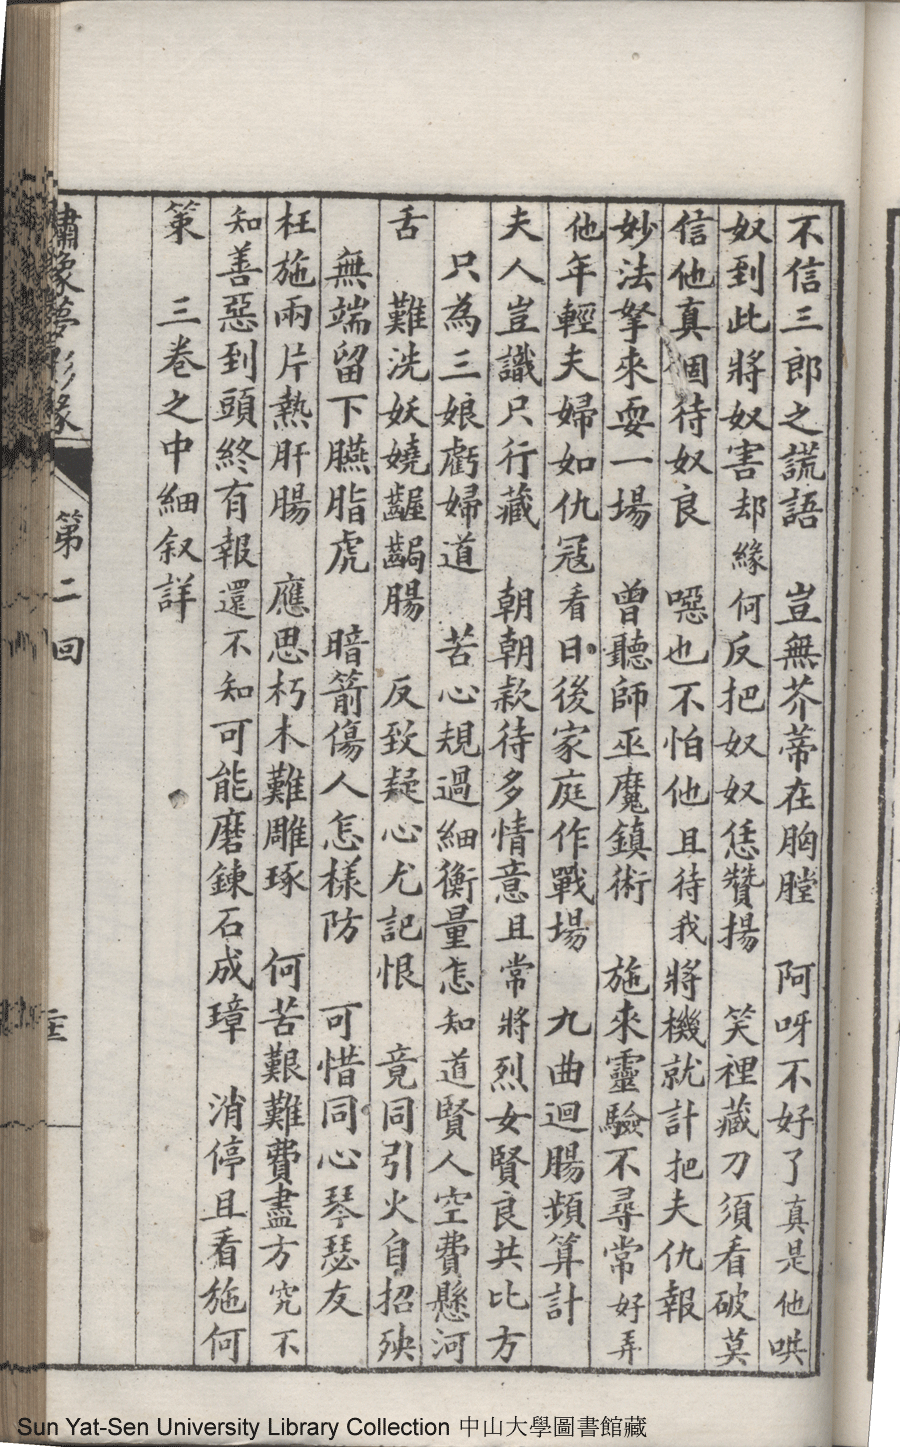 不信三郎之謊語　豈無芥蒂在胸膛　阿呀不好了真是他哄
奴到此將奴害却緣何反把奴奴恁贊揚　笑裡藏刀須看破莫
信他真個待奴良　噁也不怕他且待我將機就計把夫仇報
妙法拏來耍一場　曾聽師巫魔鎮術　施來靈驗不尋常好弄
他年輕夫婦如仇冦看日後家庭作戰場　九曲迴腸頻算計
夫人豈識只行藏　朝朝欵待多情意且常將烈女賢良共比方
只為三娘虧婦道　苦心規過細衡量怎知道賢人空費懸河
舌　難洗妖嬈齷齪腸　反致疑心尤記恨　竟同引火自招殃
無端留下臙脂虎　暗箭傷人怎樣防　可惜同心琴瑟友
枉施兩片熱肝腸　應思朽木難雕琢　何苦艱難費盡方究不
知善惡到頭終有報還不知可能磨鍊石成璋　消停且看施何
策　三卷之中細叙詳
繡像夢影緣　第二回
Sun Yat-Sen University Library Collection 中山大學圖書館藏